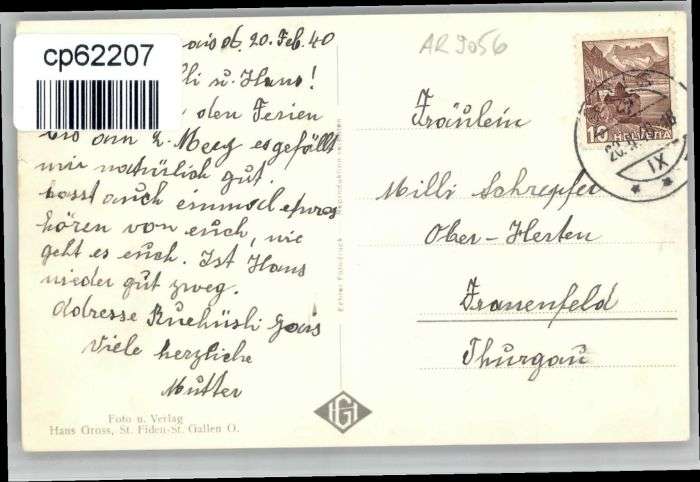 cp62207
20. Feb. 40
AR 9056
u. Hans!
den Ferien
bis am 2. Merz es gefällt
mir natürlich gut.
Lasst auch einmal etwas
hören von euch, wie
geht es euch. Ist Hans
wieder gut zweg.
Adresse Ruehüsli Gais
Viele herzliche
Mutter
Foto u. Verlag
Hans Gross, St. Fiden-St. Gallen O.
HG
Echter Fotodruck
10 HELVETIA
XI
Fräulein
Milli Schrepfer
Ober-Herten
Frauenfeld
Thurgau